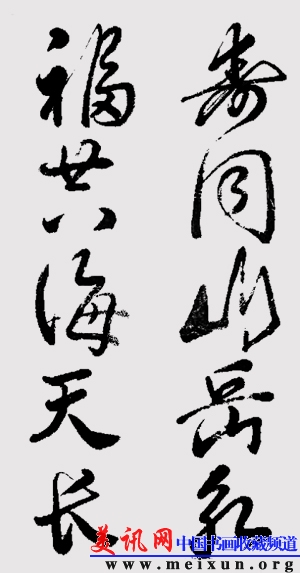 寿同山岳永
福共海天长
美讯网 中国书画收藏频道
www.meixun.org